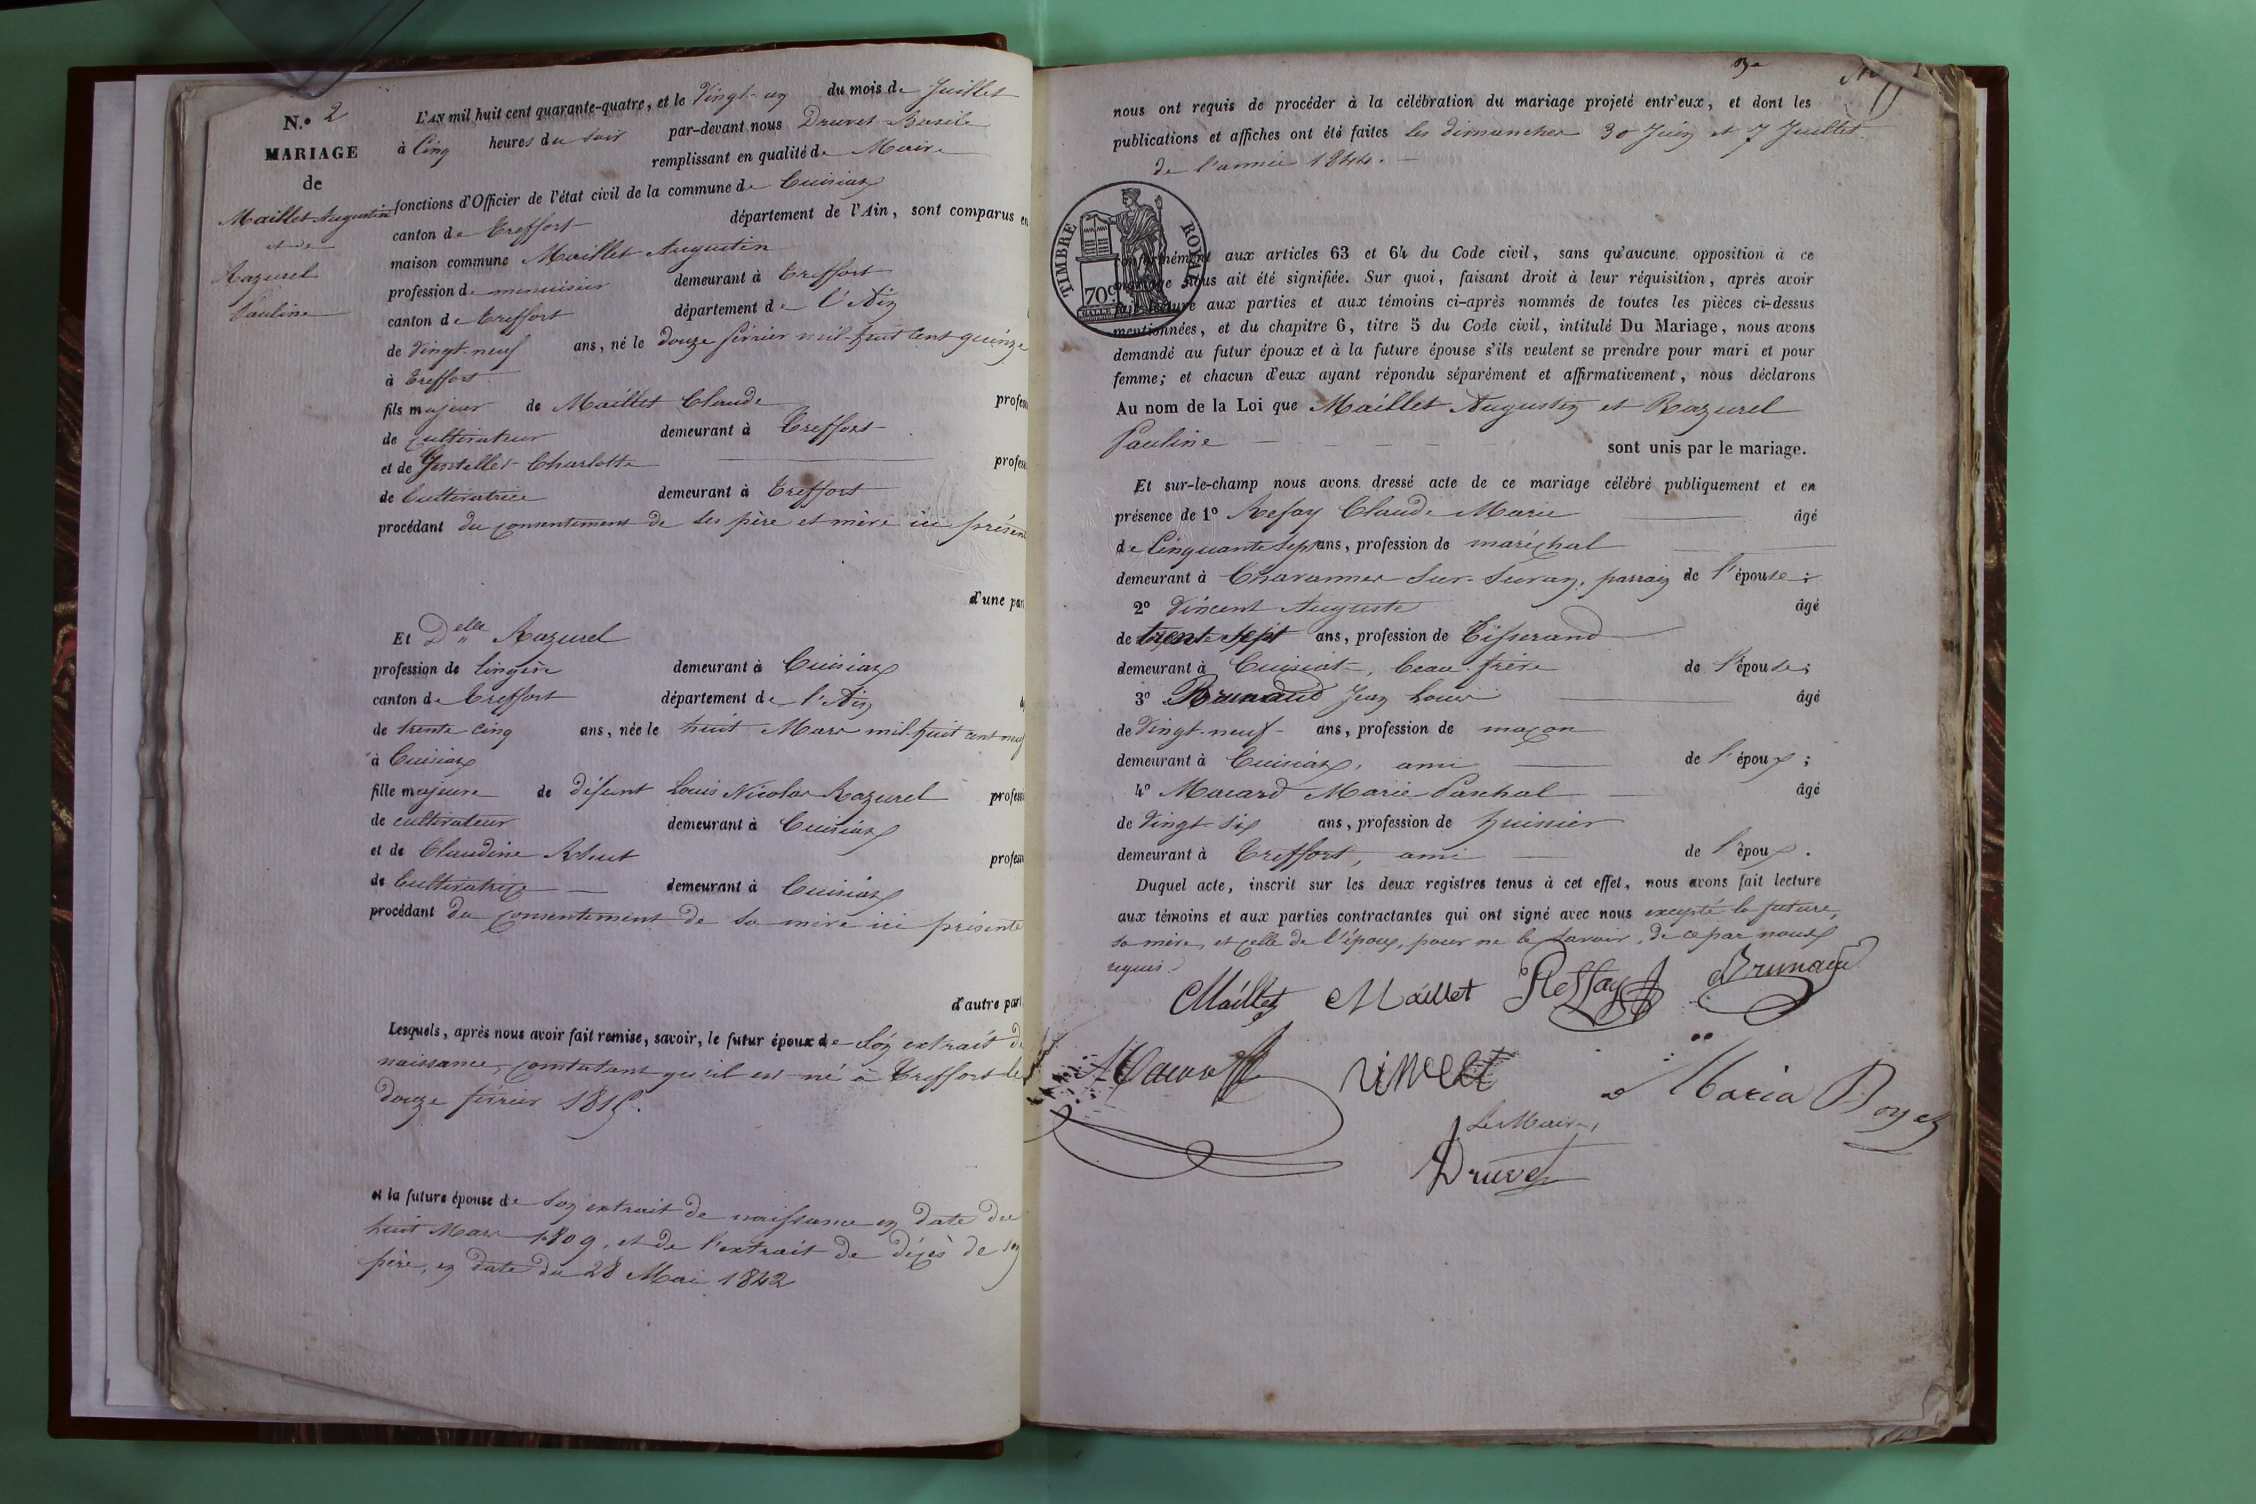 N.º 2
MARIAGE
de
Maillet Augustin
et de
Razurel
Pauline
L'AN mil huit cent quarante-quatre, et le Vingt-un du mois de Juillet
à Cinq heures du soir par-devant nous Druvet Basile
remplissant en qualité de Maire
fonctions d'Officier de l'état civil de la commune de Cuisiat
canton de Treffort département de l'Ain, sont comparus en
maison commune Maillet Augustin
profession de menuisier demeurant à Treffort
canton de Treffort département de l'Ain
de Vingt-neuf ans, né le douze février mil-huit Cent quinze
à Treffort
fils majeur de Maillet Claude profess
de cultivateur demeurant à Treffort
et de Charlotte profess
de Cultivatrice demeurant à Treffort
procédant du consentement de ses père et mère ici présen
d'une par
Et Delle Razurel
profession de lingère demeurant à Cuisiat
canton de Treffort département de l'Ain
de trente cinq ans, née le huit Mars mil-huit cent neuf
à Cuisiat
fille majeure de défunt Louis Nicolas Razurel profess
de cultivateur demeurant à Cuisiat
et de Claudine profess
de Cultivatrice demeurant à Cuisiat
procédant du consentement de sa mère ici présente
d'autre part
Lesquels, après nous avoir fait remise, savoir, le futur époux de son extrait de
naissance, constatant qu'il est né à Treffort le
douze février 1815.
et la future épouse de son extrait de naissance en date du
huit Mars 1809, et de l'extrait de décès de son
père, en date du 28 Mai 1842
nous ont requis de procéder à la célébration du mariage projeté entr'eux, et dont les
publications et affiches ont été faites les dimanches 30 Juin et 7 Juillet
de l'année 1844.
TIMBRE ROYAL
70c
conformément aux articles 63 et 64 du Code civil, sans qu'aucune opposition à ce
mariage nous ait été signifiée. Sur quoi, faisant droit à leur réquisition, après avoir
fait lecture aux parties et aux témoins ci-après nommés de toutes les pièces ci-dessus
mentionnées, et du chapitre 6, titre 5 du Code civil, intitulé Du Mariage, nous avons
demandé au futur époux et à la future épouse s'ils veulent se prendre pour mari et pour
femme; et chacun d'eux ayant répondu séparément et affirmativement, nous déclarons
Au nom de la Loi que Maillet Augustin et Razurel
Pauline sont unis par le mariage.
Et sur-le-champ nous avons dressé acte de ce mariage célébré publiquement et en
présence de 1º Refay Claude Marie âgé
de Cinquante sept ans, profession de maréchal
demeurant à Chavannes sur-Suran, parrain de l'épouse;
2º Vincent Auguste âgé
de trente sept ans, profession de Tisserand
demeurant à Cuisiat, beau-frère de l'épouse;
3º Brunaud Jean Louis âgé
de Vingt-neuf ans, profession de maçon
demeurant à Cuisiat, ami de l'époux;
4º Macard Marie Paschal âgé
de Vingt-six ans, profession de huissier
demeurant à Treffort, ami de l'époux.
Duquel acte, inscrit sur les deux registres tenus à cet effet, nous avons fait lecture
aux témoins et aux parties contractantes qui ont signé avec nous excepté la future,
sa mère, et celle de l'époux, pour ne le savoir, de ce par nous
requis.
Maillet Maillet Reffay Brunaud
Macard Vincent Maria Boyet
Le Maire,
Druvet